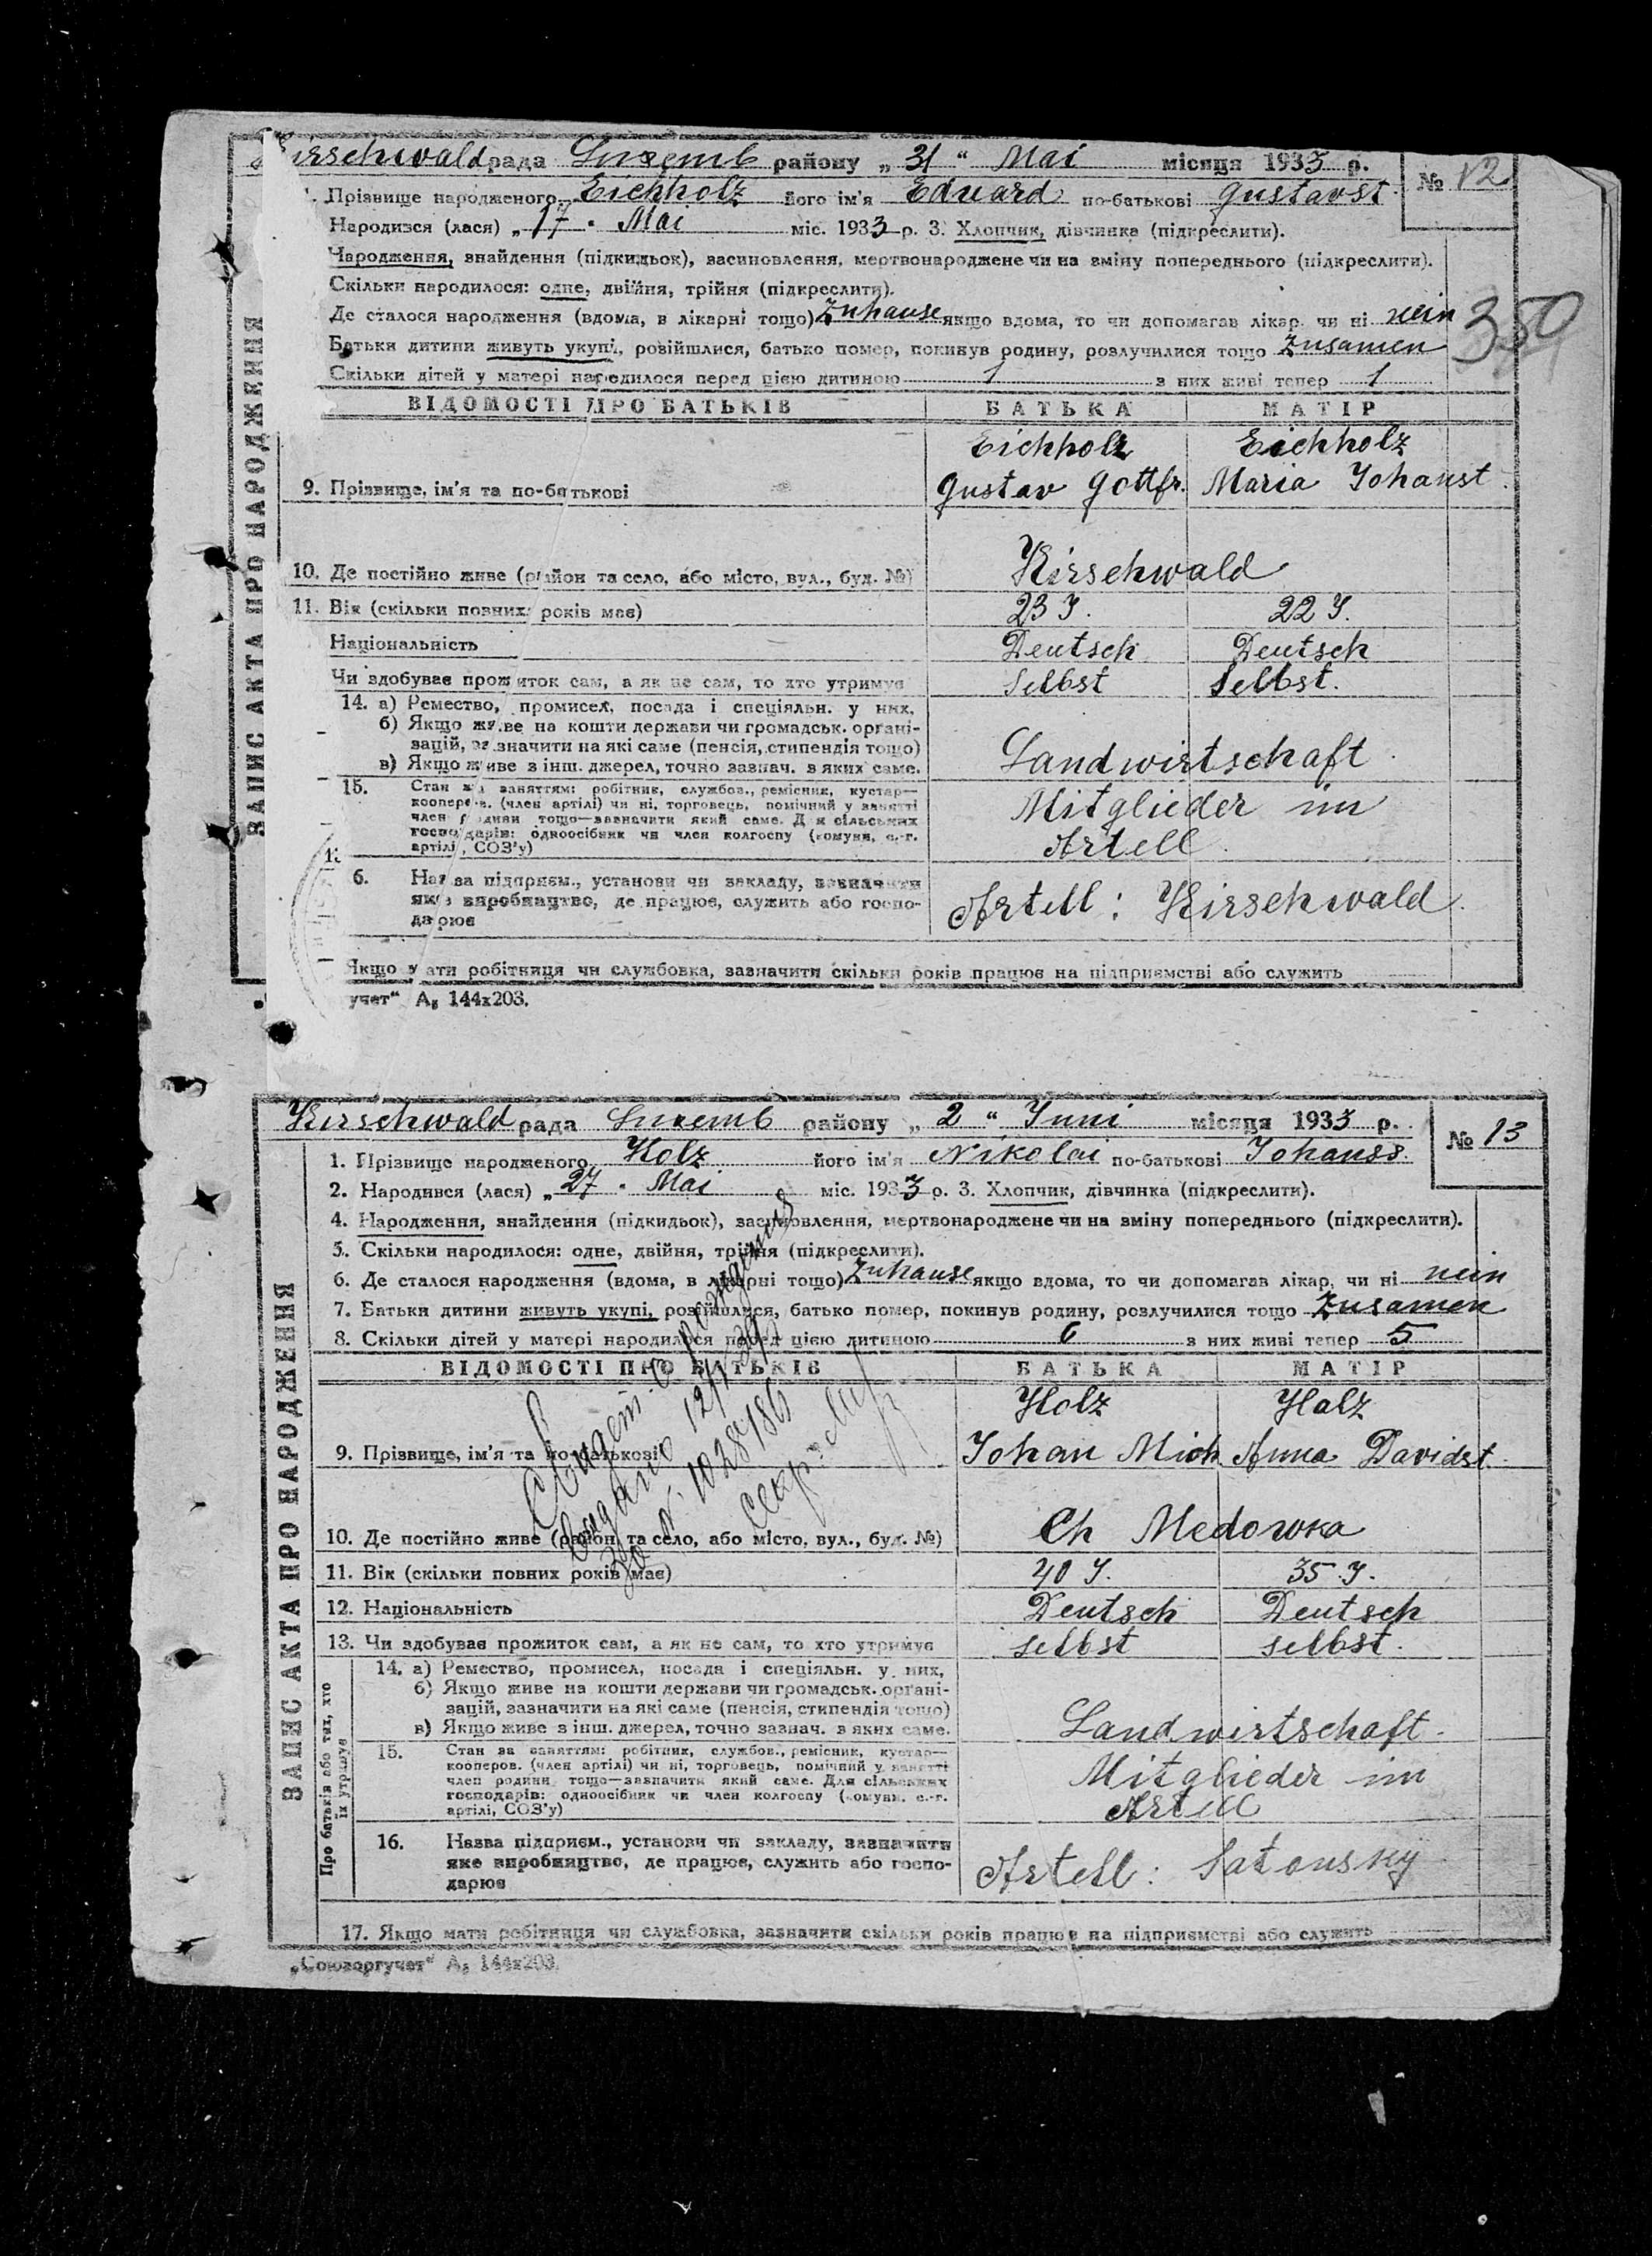 Kirschwald рада Luxemb району „ 31 “ Mai місяця 1933 р.
№ 12
1. Прізвище народженого Eichholz його ім'я Eduard по-батькові Gustavst.
Народився (лася) „ 17 " Mai міс. 1933 р. 3. Хлопчик, дівчинка (підкреслити).
Народження, знайдення (підкидьок), засиновлення, мертвонароджене чи на зміну попереднього (підкреслити).
Скільки народилося: одне, двійня, трійня (підкреслити).
Де сталося народження (вдома, в лікарні тощо) Zuhause якщо вдома, то чи допомагав лікар чи ні nein
350
Батьки дитини живуть укупі, розвійшлися, батько помер, покинув родину, розлучилися тощо Zusamen
Скільки дітей у матері народилося перед цією дитиною 1 з них живі тепер 1
ЗАПИС АКТА ПРО НАРОДЖЕННЯ
ВІДОМОСТІ ПРО БАТЬКІВ БАТЬКА МАТІР
Eichholz Eichholz
9. Прізвище, ім'я та по-батькові Gustav Gottfr. Maria Johanst.
10. Де постійно живе (район та село, або місто, вул., буд. №) Kirschwald
11. Вік (скільки повних років має) 23 J. 22 J.
Національність Deutsch Deutsch
Чи здобуває прожиток сам, а як не сам, то хто утримує Selbst Selbst.
14. а) Ремество, промисел, посада і спеціяльн. у них,
б) Якщо живе на кошти держави чи громадськ. органі-
зацій, зазначити на які саме (пенсія, стипендія тощо)
в) Якщо живе з інш. джерел, точно зазнач. з яких саме.
Landwirtschaft
15. Стан за заняттям: робітник, службов., ремісник, кустар—
кооперов. (член артілі) чи ні, торговець, помічний у занятті
член родини тощо—зазначити який саме. Для сільських
господарів: одноосібник чи член колгоспу (комуни, с.-г.
артілі, СОЗ'у)
Mitglieder im
Artell
6. Назва підприєм., установи чи закладу, зазначити
яке виробництво, де працює, служить або госпо-
дарює
Artell: Kirschwald.
Якщо мати робітниця чи службовка, зазначити скільки років працює на підприємстві або служить
учет“ А₅ 144х203.
Kirschwald рада Luxemb району „ 2 “ Juni місяця 1933 р.
№ 13
1. Прізвище народженого Holz його ім'я Nikolai по-батькові Johanss.
2. Народився (лася) „ 27 " Mai міс. 1933 р. 3. Хлопчик, дівчинка (підкреслити).
4. Народження, знайдення (підкидьок), засиновлення, мертвонароджене чи на зміну попереднього (підкреслити).
5. Скільки народилося: одне, двійня, трійня (підкреслити).
6. Де сталося народження (вдома, в лікарні тощо) Zuhause якщо вдома, то чи допомагав лікар, чи ні nein
7. Батьки дитини живуть укупі, розвійшлися, батько помер, покинув родину, розлучилися тощо Zusamen
8. Скільки дітей у матері народилося перед цією дитиною 6 з них живі тепер 5
ЗАПИС АКТА ПРО НАРОДЖЕННЯ
ВІДОМОСТІ ПРО БАТЬКІВ БАТЬКА МАТІР
Holz Holz
9. Прізвище, ім'я та по-батькові Johan Mich. Anna Davidst.
о рождении
1028186
10. Де постійно живе (район та село, або місто, вул., буд. №) Ch Medowka
11. Вік (скільки повних років має) 40 J. 35 J.
12. Національність Deutsch Deutsch
13. Чи здобуває прожиток сам, а як не сам, то хто утримує selbst selbst.
Про батьків або тих, хто їх утримує
14. а) Ремество, промисел, посада і спеціяльн. у них,
б) Якщо живе на кошти держави чи громадськ. органі-
зацій, зазначити на які саме (пенсія, стипендія тощо)
в) Якщо живе з інш. джерел, точно зазнач. з яких саме.
Landwirtschaft.
15. Стан за заняттям: робітник, службов., ремісник, кустар—
кооперов. (член артілі) чи ні, торговець, помічний у занятті
член родини тощо—зазначити який саме. Для сільських
господарів: одноосібник чи член колгоспу (комуни, с.-г.
артілі, СОЗ'у)
Mitglieder im
Artell
16. Назва підприєм., установи чи закладу, зазначити
яке виробництво, де працює, служить або госпо-
дарює
Artell: Satonsky
17. Якщо мати робітниця чи службовка, зазначити скільки років працює на підприємстві або служить
„Союзоргучет“ А₅ 144х203.